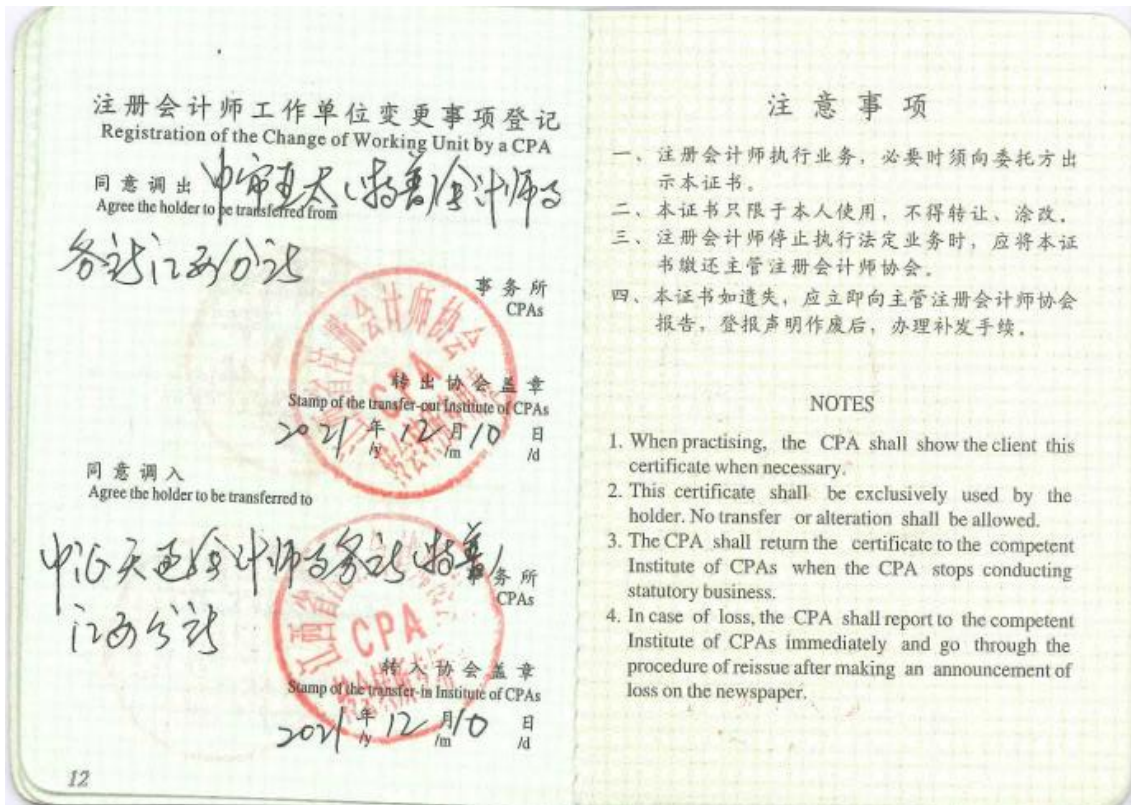 注册会计师工作单位变更事项登记
Registration of the Change of Working Unit by a CPA
同意调出 中审亚太(特普)会计师事
Agree the holder to be transferred from
务所江西分所
事务所
CPAs
转出协会盖章
Stamp of the transfer-out Institute of CPAs
2021年12月10日
/y /m /d
同意调入
Agree the holder to be transferred to
中证天通会计师事务所(特普)
事务所
CPAs
江西分所
转入协会盖章
Stamp of the transfer-in Institute of CPAs
2021年12月10日
/y /m /d
江西省注册会计师协会
CPA
江西省
CPA
12
注意事项
一、注册会计师执行业务,必要时须向委托方出
示本证书。
二、本证书只限于本人使用,不得转让、涂改。
三、注册会计师停止执行法定业务时,应将本证
书缴还主管注册会计师协会。
四、本证书如遗失,应立即向主管注册会计师协会
报告,登报声明作废后,办理补发手续。
NOTES
1. When practising, the CPA shall show the client this
certificate when necessary.
2. This certificate shall be exclusively used by the
holder. No transfer or alteration shall be allowed.
3. The CPA shall return the certificate to the competent
Institute of CPAs when the CPA stops conducting
statutory business.
4. In case of loss, the CPA shall report to the competent
Institute of CPAs immediately and go through the
procedure of reissue after making an announcement of
loss on the newspaper.